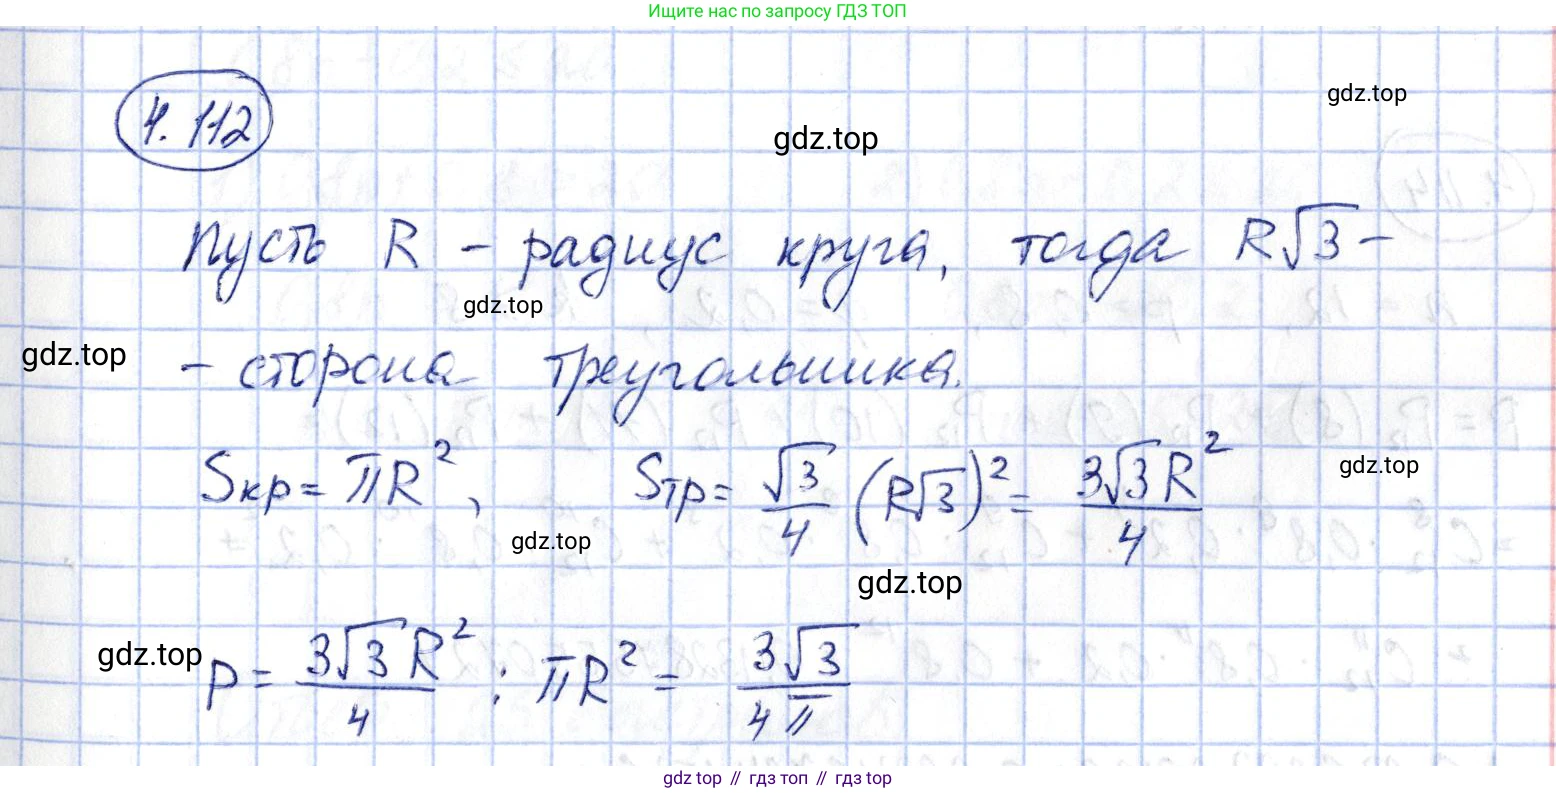 Ищите нас по запросу ГДЗ ТОП
4.112
gdz.top
gdz.top
Пусть R – радиус круга, тогда R√3 –
gdz.top
gdz.top
– сторона треугольника.
Sкр = πR², Sтр = √3/4 (R√3)² = 3√3R²/4
gdz.top
gdz.top
gdz.top
gdz.top
p = 3√3R²/4 : πR² = 3√3/4π
gdz top // гдз топ // гдз top